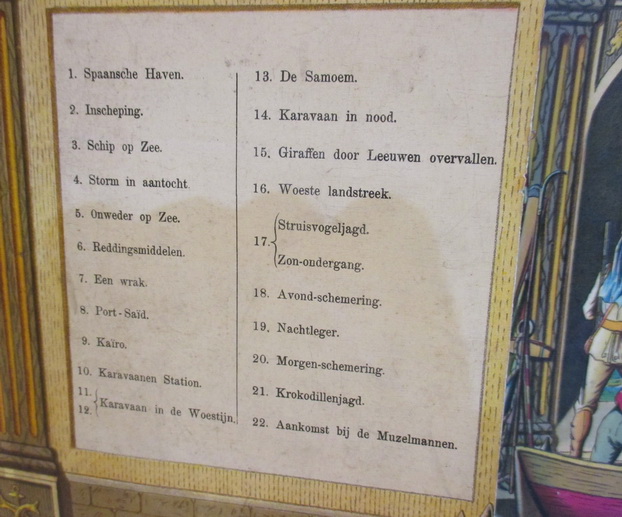 1. Spaansche Haven.
2. Inscheping.
3. Schip op Zee.
4. Storm in aantocht.
5. Onweder op Zee.
6. Reddingsmiddelen.
7. Een wrak.
8. Port-Saïd.
9. Kaïro.
10. Karavaanen Station.
11.
12. Karavaan in de Woestijn.
13. De Samoem.
14. Karavaan in nood.
15. Giraffen door Leeuwen overvallen.
16. Woeste landstreek.
17. Struisvogeljagd.
Zon-ondergang.
18. Avond-schemering.
19. Nachtleger.
20. Morgen-schemering.
21. Krokodillenjagd.
22. Aankomst bij de Muzelmannen.